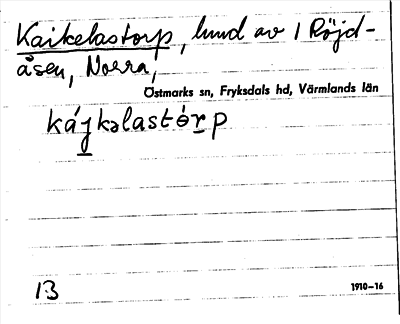 Kaikelastorp, lund av 1 Röjd-
åsen, Norra,
Östmarks sn, Fryksdals hd, Värmlands län
kájkəlastórp
13 1910-16